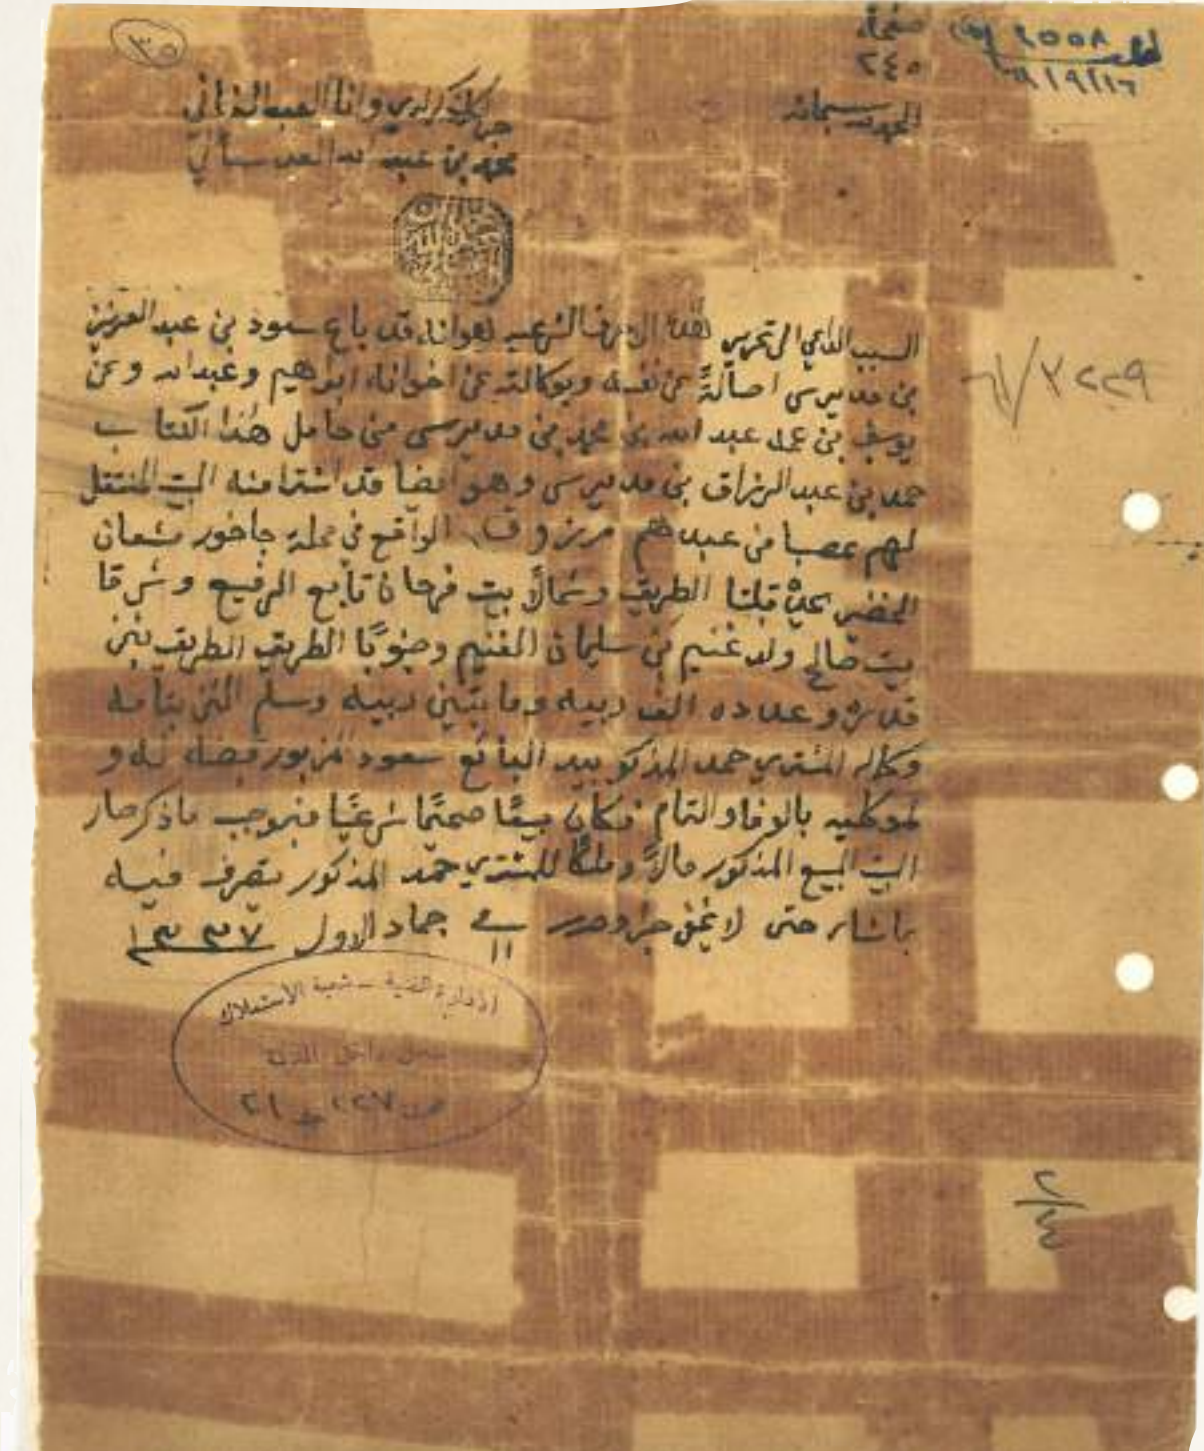 ٣٥
صفحة
٢٤٥
٩٥٥٨
الحمد لله سبحانه
جرى ذلك لدي وأنا العبد الفاني
محمد بن عبد الله العدساني
السبب الداعي الى تحرير هذه الاحرف الشرعيه هو انه قد باع سعود بن عبد العزيز
بن مديرس اصالةً عن نفسه وبوكالته عن اخوانه ابراهيم وعبد الله وعن
يوسف بن عبد الله بن محمد بن مديرس من حامل هذا الكتاب
حمد بن عبد الرزاق بن مديرس وهو ايضا قد اشترا منه البيت المنتقل
لهم عصبا من عبدهم مرزوق الواقع في محلة جاخور شعبان
الخضير يحده قبلتا الطريق وشمالا بيت فرحان تابع الرفيع وشرقا
بيت صالح ولد غنيم بن سليمان الغنيم وجنوبا الطريق الطريق بثمن
قدره وعدده الف ربيه ومايتين ربيه وسلم الثمن بتمامه
وكماله المشتري حمد المذكور بيد البائع سعود المزبور قبضه له و
لموكليه بالوفا والتمام فكان بيعًا صحيحًا شرعيًا فبموجب ماذكر صار
البيت المبيع المذكور مالاً وملكًا للمشتري حمد المذكور يتصرف فيه
بماشاء حتى لا يخفى جرا وحرر في ١١ جماد الاول ١٣٣٧
الادارة الفنية - شعبة الاستملاك
سجل داخل المدينة
ص ٢٢٧ ج ٢١